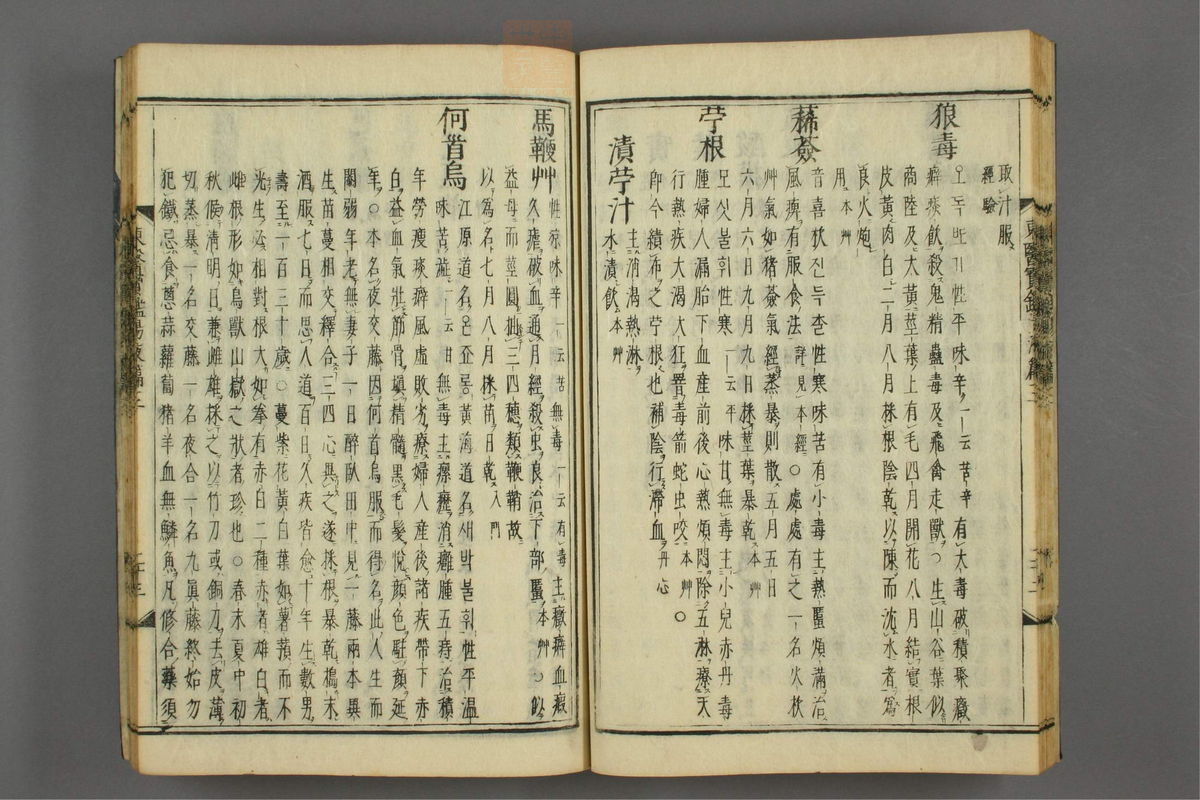 取汁服
經驗
狼毒
오독ᄯᅩ기性平味辛一云苦辛有大毒破積聚癥
癖痰飮殺鬼精蠱毒及飛禽走獸○生山谷葉似
商陸及大黃莖葉上有毛四月開花八月結實根
皮黃肉白二月八月採根陰乾以陳而沈水者爲
良火炮
用本艸
豨薟
音喜杴진득ᄎᆞᆯ性寒味苦有小毒主熱䘌煩滿治
風痺有服食法詳見本經○處處有之一名火杴
艸氣如猪薟氣經蒸暴則散五月五日
六月六日九月九日採莖葉暴乾本艸
苧根
모싯불휘性寒一云平味甘無毒主小兒赤丹毒
腫婦人漏胎下血産前後心熱煩悶除五淋療天
行熱疾大渴大狂署毒箭蛇虫咬本艸○
卽今績布之苧根也補陰行滯血丹心
漬苧汁
主消渴熱淋
水漬飮本艸
馬鞭艸
性凉味辛一云苦無毒一云有毒主癥癖血瘕
久瘧破血通月經殺虫良治下部䘌本艸○似
益母而莖圓抽三四穗類鞭鞘故
以爲名七月八月採苗日乾入門
何首烏
江原道名온죠롱黃海道名새박불휘性平温
味苦澁一云甘無毒主瘰癧消癰腫五痔治積
年勞瘦痰癖風虛敗劣療婦人産後諸疾帶下赤
白益血氣壯筋骨塡精髓黑毛髮悅顔色駐顔延
年○本名夜交藤因何首烏服而得名此人生而
閹弱年老無妻子一日醉臥田中見一藤兩本異
生苗蔓相交釋合三四心異之遂採根暴乾搗末
酒服七日而思人道百日久疾皆愈十年生數男
壽至一百三十歲○蔓紫花黃白葉如薯蕷而不
光生必相對根大如拳有赤白二種赤者雄白者
雌根形如鳥獸山嶽之狀者珍也○春末夏中初
秋候淸明日兼雌雄採之以竹刀或銅刀去皮薄
切蒸暴一名交藤一名夜合一名九眞藤終始勿
犯鐵忌食葱蒜蘿蔔猪羊血無鱗魚凡修合藥須